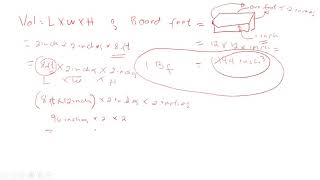 Vol = L X W X H ; Board foot =
one foot = 12 inches
inch
= 2inch x 2 inches x 8ft
= 12 x 12 x inch
= 8ft x 2inches x 2inches
L W H
1 Bf = 144 inch³
(8ft x 12inch) x 2 inches x 2 inches
96 inches x 2 x 2
=